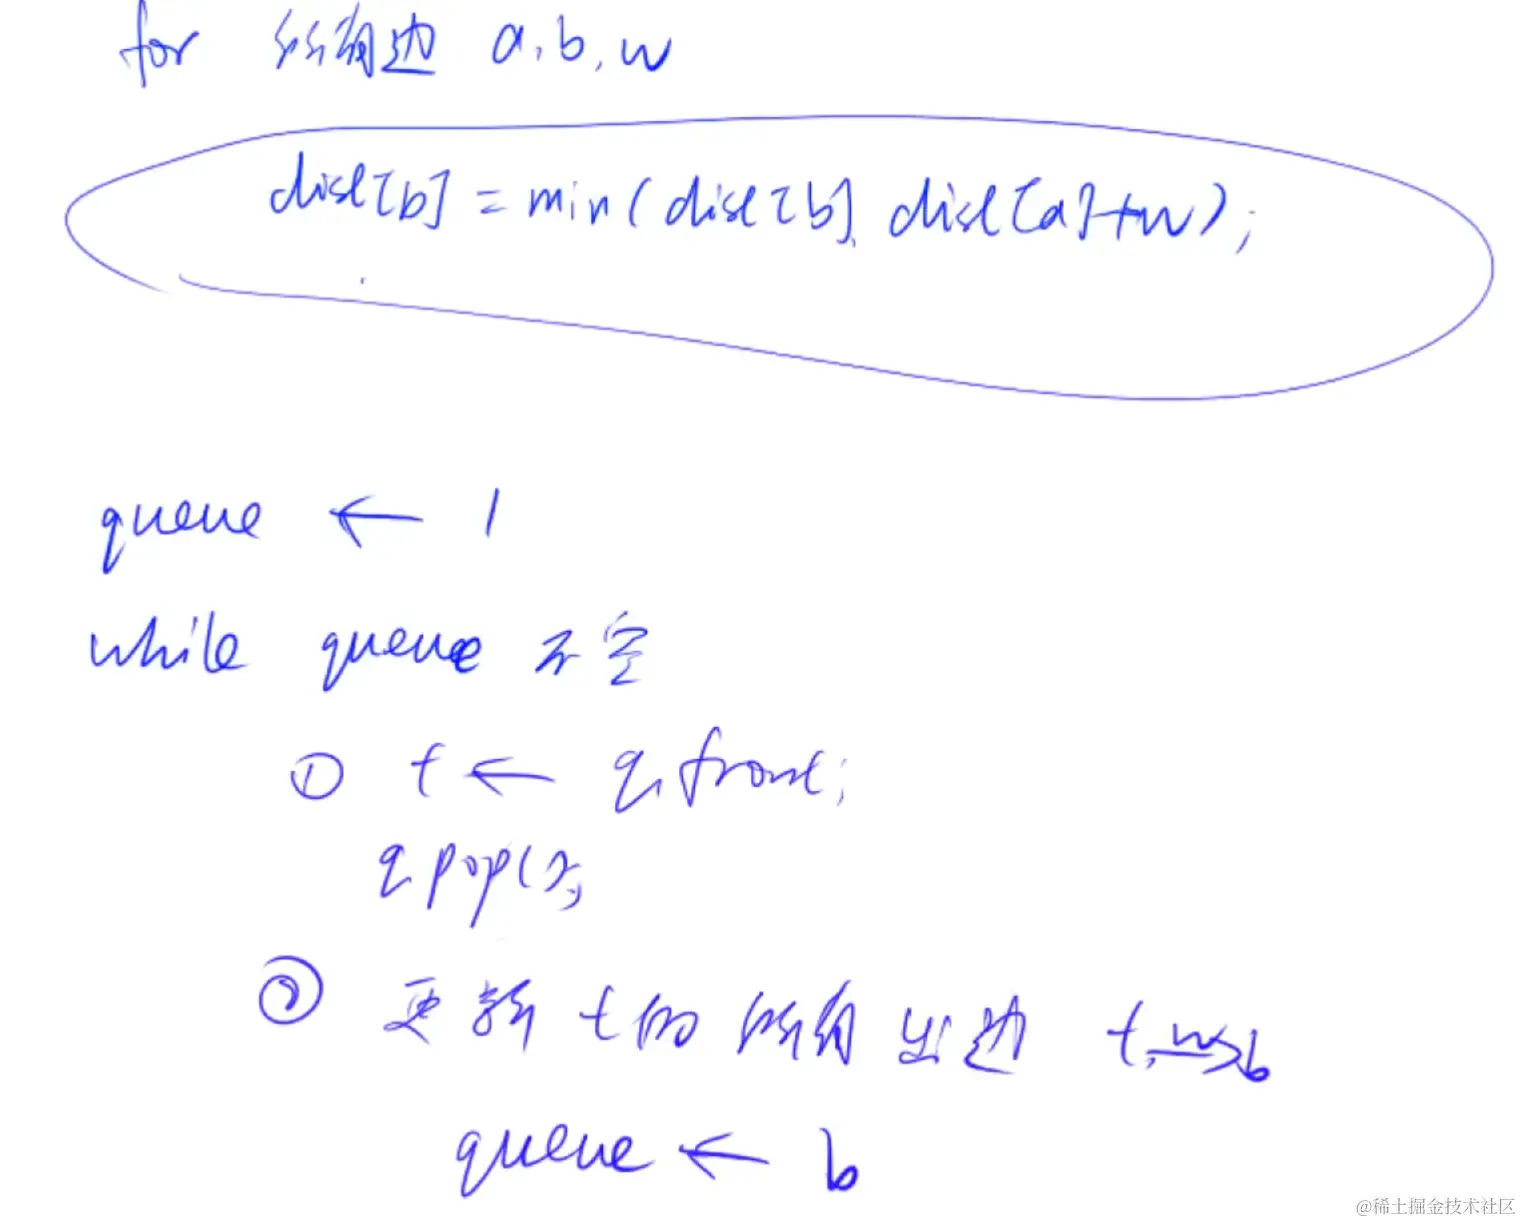 for 所有边 a,b,w
dist[b] = min(dist[b], dist[a]+w);
queue ← 1
while queue 不空
① t ← q.front;
q.pop();
② 更新 t的 所有 出边 t, w→ b
queue ← b
@稀土掘金技术社区